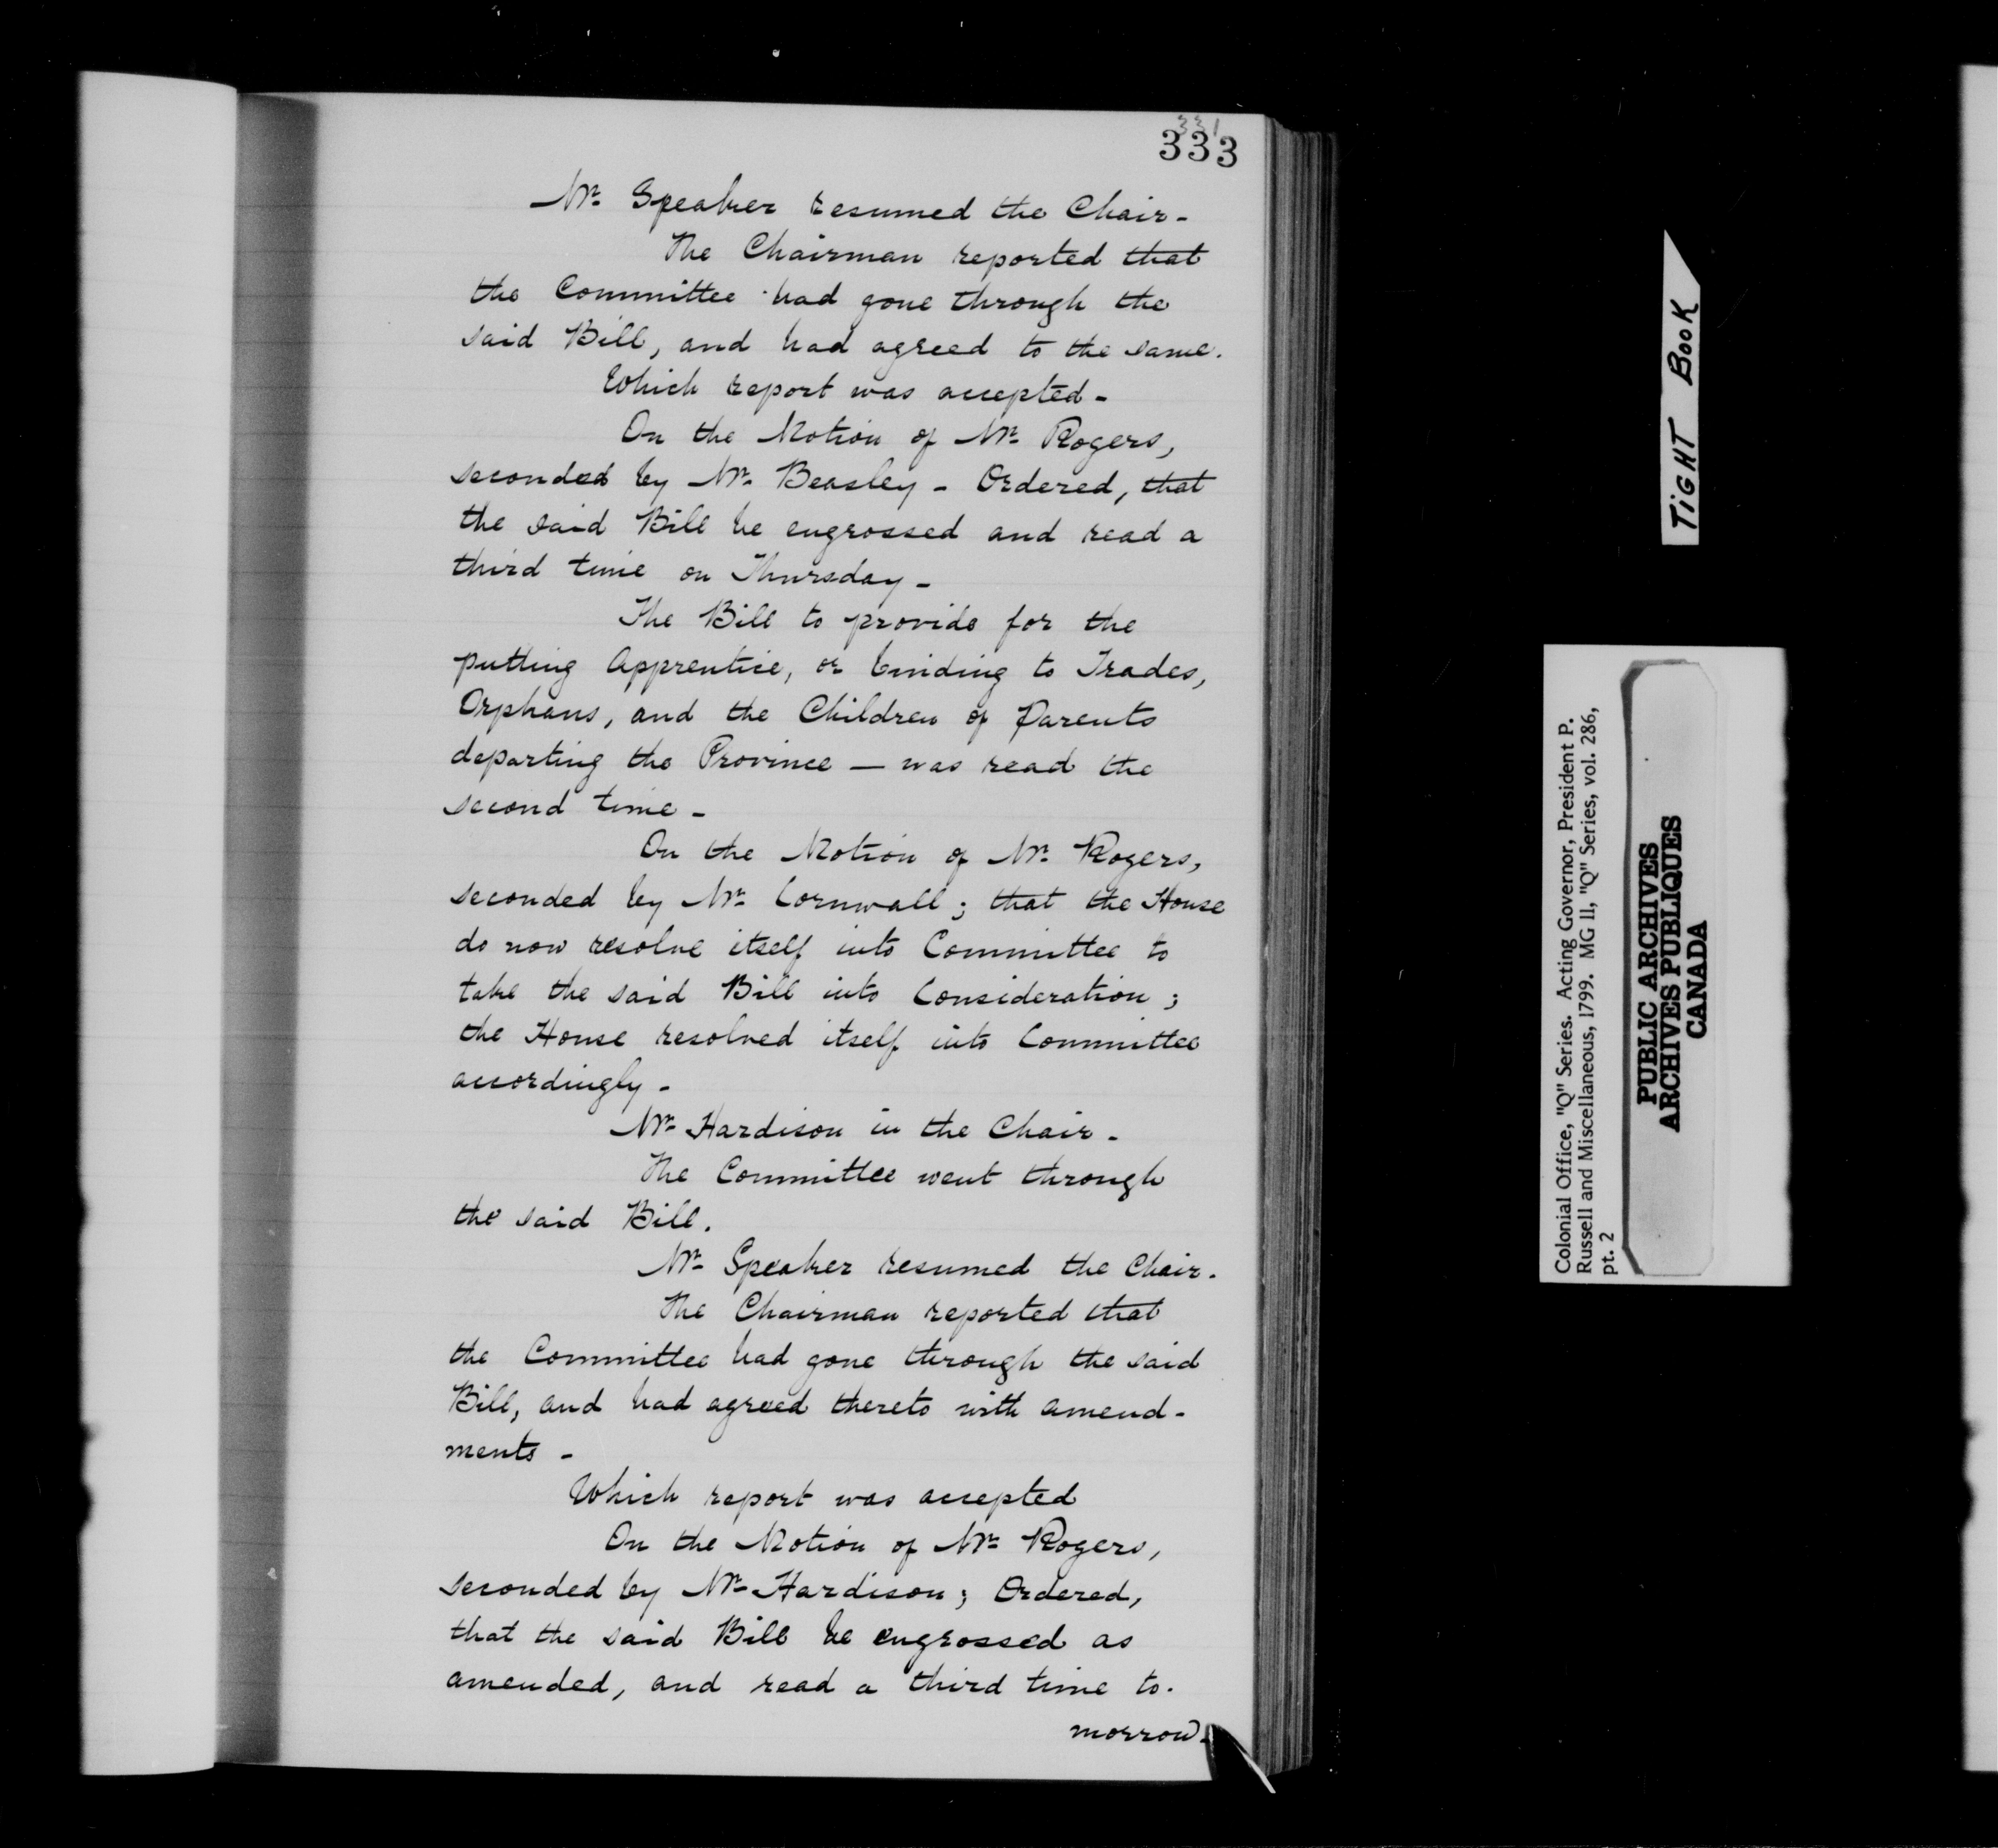 331
333
Mr. Speaker resumed the Chair -
The Chairman reported that
the Committee had gone through the
said Bill, and had agreed to the same.
Which report was accepted -
On the Motion of Mr. Rogers,
seconded by Mr. Beasley - Ordered, that
the said Bill be engrossed and read a
third time on Thursday -
The Bill to provide for the
putting Apprentice, or binding to Trades,
Orphans, and the Children of Parents
departing the Province — was read the
second time -
On the Motion of Mr. Rogers,
seconded by Mr. Cornwall; that the House
do now resolve itself into Committee to
take the said Bill into Consideration;
the House resolved itself into Committee
accordingly -
Mr. Hardison in the Chair -
The Committee went through
the said Bill.
Mr. Speaker resumed the Chair.
The Chairman reported that
the Committee had gone through the said
Bill, and had agreed thereto with amend-
ments -
Which report was accepted
On the Motion of Mr. Rogers,
seconded by Mr. Hardison; Ordered,
that the said Bill be engrossed as
amended, and read a third time to-
morrow -
TIGHT BOOK
Colonial Office, "Q" Series. Acting Governor, President P.
Russell and Miscellaneous, 1799. MG 11, "Q" Series, vol. 286,
pt. 2
PUBLIC ARCHIVES
ARCHIVES PUBLIQUES
CANADA